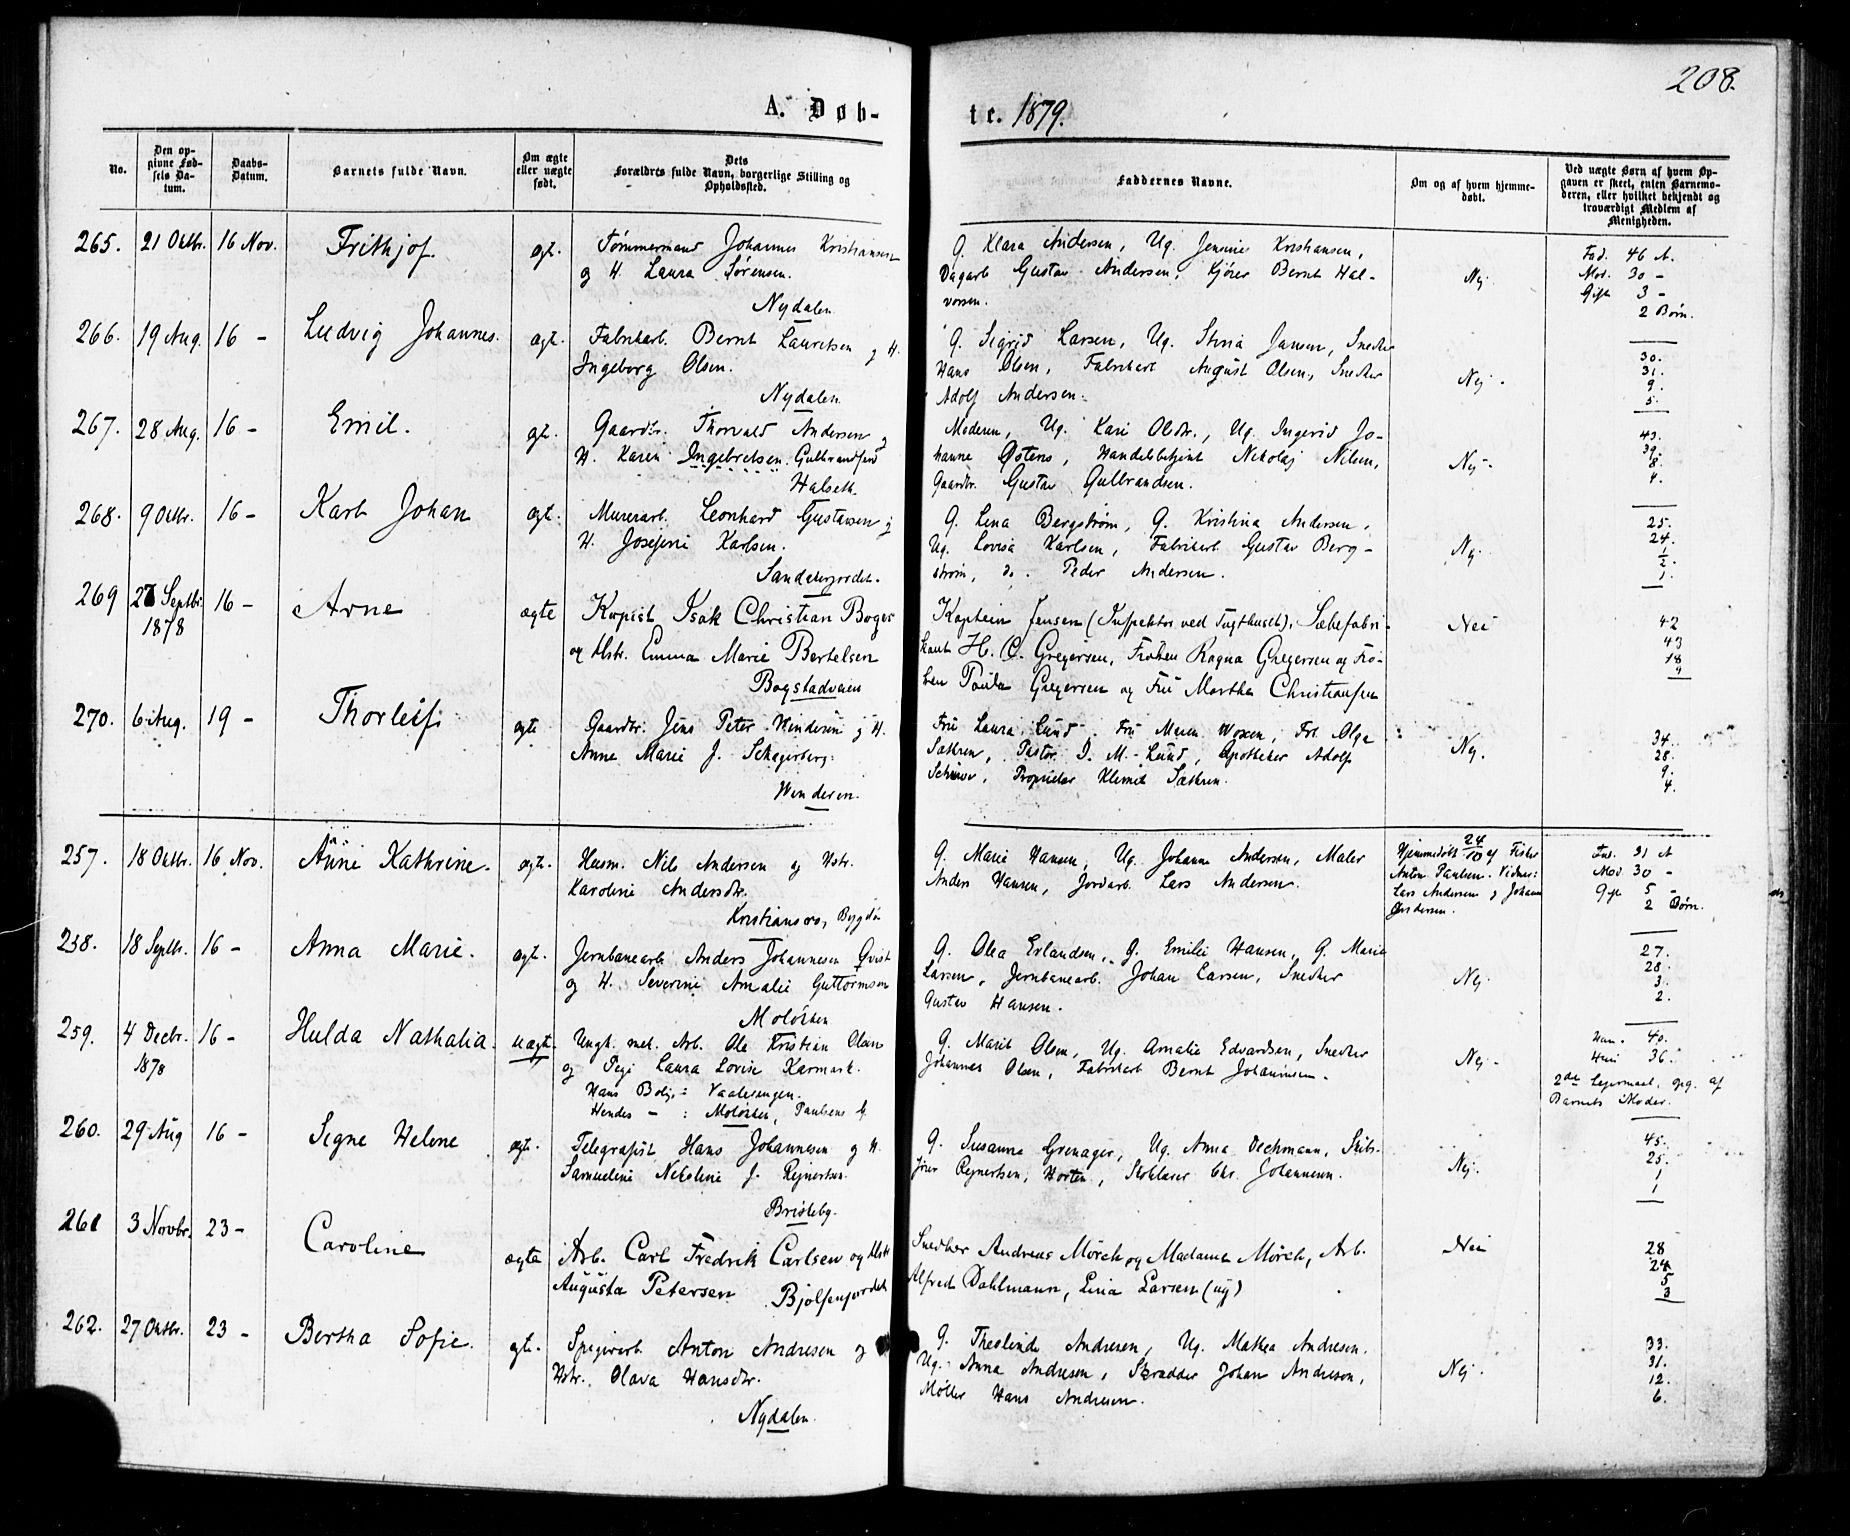 208.
A. Døb-
te. 1879.
No.
Den op-
givne Fød-
sels Da-
tum.
Daabs-
Datum.
Barnets fulde Navn.
Om ægte
eller uægte
født.
Dets
Forældres fulde Navn, borgerlige Stilling og
Opholdssted.
Faddernes Navne.
Om og af hvem hjemme-
døbt.
Ved uægte Børn af hvem Op-
gaven er skeet, enten Barnemo-
deren, eller hvilket bekjendt og
troværdigt Medlem af
Menigheden.
265. 21 Oktbr. 16 Nov. Frithjof. ægt.
Tømmermand Johannes Kristiansen
og H. Laura Sørensen.
Nydalen
G. Klara Andersen, Ug. Jensine Kristiansen,
Dagarb Gustav Andersen, Kjører Bernt Hal-
vorsen.
Nej.
Fad. 46 A.
Mod. 30 -
Gift 3 -
2 Børn.
266. 19 Aug. 16 - Ludvig Johannes. ægt.
Fabrikarb. Bernt Lauritsen og H.
Ingeborg Olsen.
Nydalen
G. Sigrid Larsen, Ug. Stina Jansen, Snedker
Hans Olsen, Fabrikarb August Olsen, Snedker
Adolf Andersen.
Nej.
30.
31.
9.
5.
267. 28 Aug. 16 - Emil. ægt.
Gaardbr. Thorvald Andersen og
H. Karen Ingebretsen Gulbrandsen
Halseth.
Moderen, Ug. Kari Oldtr., Ug. Ingerid Jo-
hanne Østens, Handelsbetjent Nikolaj Nilsen,
Gaardbr. Gustav Gulbrandsen.
Nej.
43.
39.
8.
4.
268. 9 Oktbr. 16 - Karl Johan ægt.
Murerarb. Leonhard Gustavsen og
H. Josefine Karlsen.
Sandakerjordet.
G. Lina Bergstrøm, G. Kristina Andersen,
Ug. Lovisa Karlsen, Fabrikarb. Gustav Berg-
strøm, do. Peder Andersen.
Nej.
25.
24.
1/2.
1.
269 27 Septbr. 16 - Arne ægte
1878
Kopist Isak Christian Boger
og Hstr. Emma Marie Bertelsen
Bogstadveien
Kaptein Jensen (Inspektør ved Tugthuset), Sæbefabri-
kant H. C. Gregersen, Frøken Ragna Gregersen og Frø-
ken Paula Gregersen og Fru Martha Christiansen
Nei
42
43
18
9
270. 6 Aug. 19 - Thorleif. ægte
Gaardbr. Jens Peter Vinderen og H.
Anne Marie J. Schagerberg.
Vinderen.
Fru Laura Lund, Fru Maren Woxen, Frk Olga
Sæthren, Pastor D. M. Lund, Apotheker Adolf
Proprietær Klemet Sæthren.
Nej.
34.
28.
9.
4.
257. 18 Oktbr. 16 Nov. Anne Kathrine. ægt.
Husm. Nils Andersen og Hstr.
Karoline Andersdtr.
Kristiansro, Bygdø
G. Marie Hansen, Ug. Johanne Andersen, Maler
Anders Hansen, Jordarb. Lars Andersen.
Hjemmedøbt 24/10 af Fisker
Anton Paulsen. Vidner:
Lars Andersen og Johan
Andersen.
Fad. 31 A
Mod. 30 -
Gift 5 -
2 Børn.
258. 18 Septbr. 16 - Anna Marie. ægt.
Jernbanearb Anders Johannesen Qvist
og H. Severine Amalie Guttormsen
Moløkken
G. Olea Erlandsen, G. Emilie Hansen, G. Marie
Larsen, Jernbanearb. Johan Larsen, Snedker
Gustav Hansen.
Nej.
27.
28.
3.
2.
259. 4 Decbr. 16 - Hulda Nathalia. uægt.
1878
Ungk. mel. Arb. Ole Kristian Olsen
og Pige Laura Lovise Karmark.
Hans Bolig: Vaalerengen.
Hendes - : Moløkken, Paulsens G.
G. Marit Olsen, Ug. Amalie Edvardsen, Snedker
Johannes Olsen, Fabrikarb Bernt Johannesen.
Nej.
Han. 40.
Hun 36.
2det Leiermaal, opg. af
Barnets Moder.
260. 29 Aug 16 - Signe Helene ægt.
Telegrafist Hans Johannesen og H.
Samueline Nikoline J. Rejnertsen.
Briskeby.
G. Susanna Grenager, Ug. Anna Dechmann, Skibs-
fører Rejnertsen, Horten, Skolelærer Chr. Johannesen.
Nej.
45.
25.
1
1
261 3 Novbr. 23 - Caroline ægte
Arb. Carl Fredrik Carlsen og Hstr
Augusta Petersen Bjølsenjordet
Snedker Andreas Mørch og Madame Mørch, Arb.
Alfred Dahlmann, Lina Larsen (ug)
Nei
28
24
5
3
262. 27 Oktbr. 23 - Bertha Sofie. ægt.
Spigerarb. Anton Andresen og
Hstr. Olava Hansdtr.
Nydalen.
G. Theolinde Andresen, Ug. Mathea Andresen.
Ug. Anna Andresen, Skrædder Johan Andreson,
Møller Hans Andresen.
Nej.
33.
31.
12.
6.